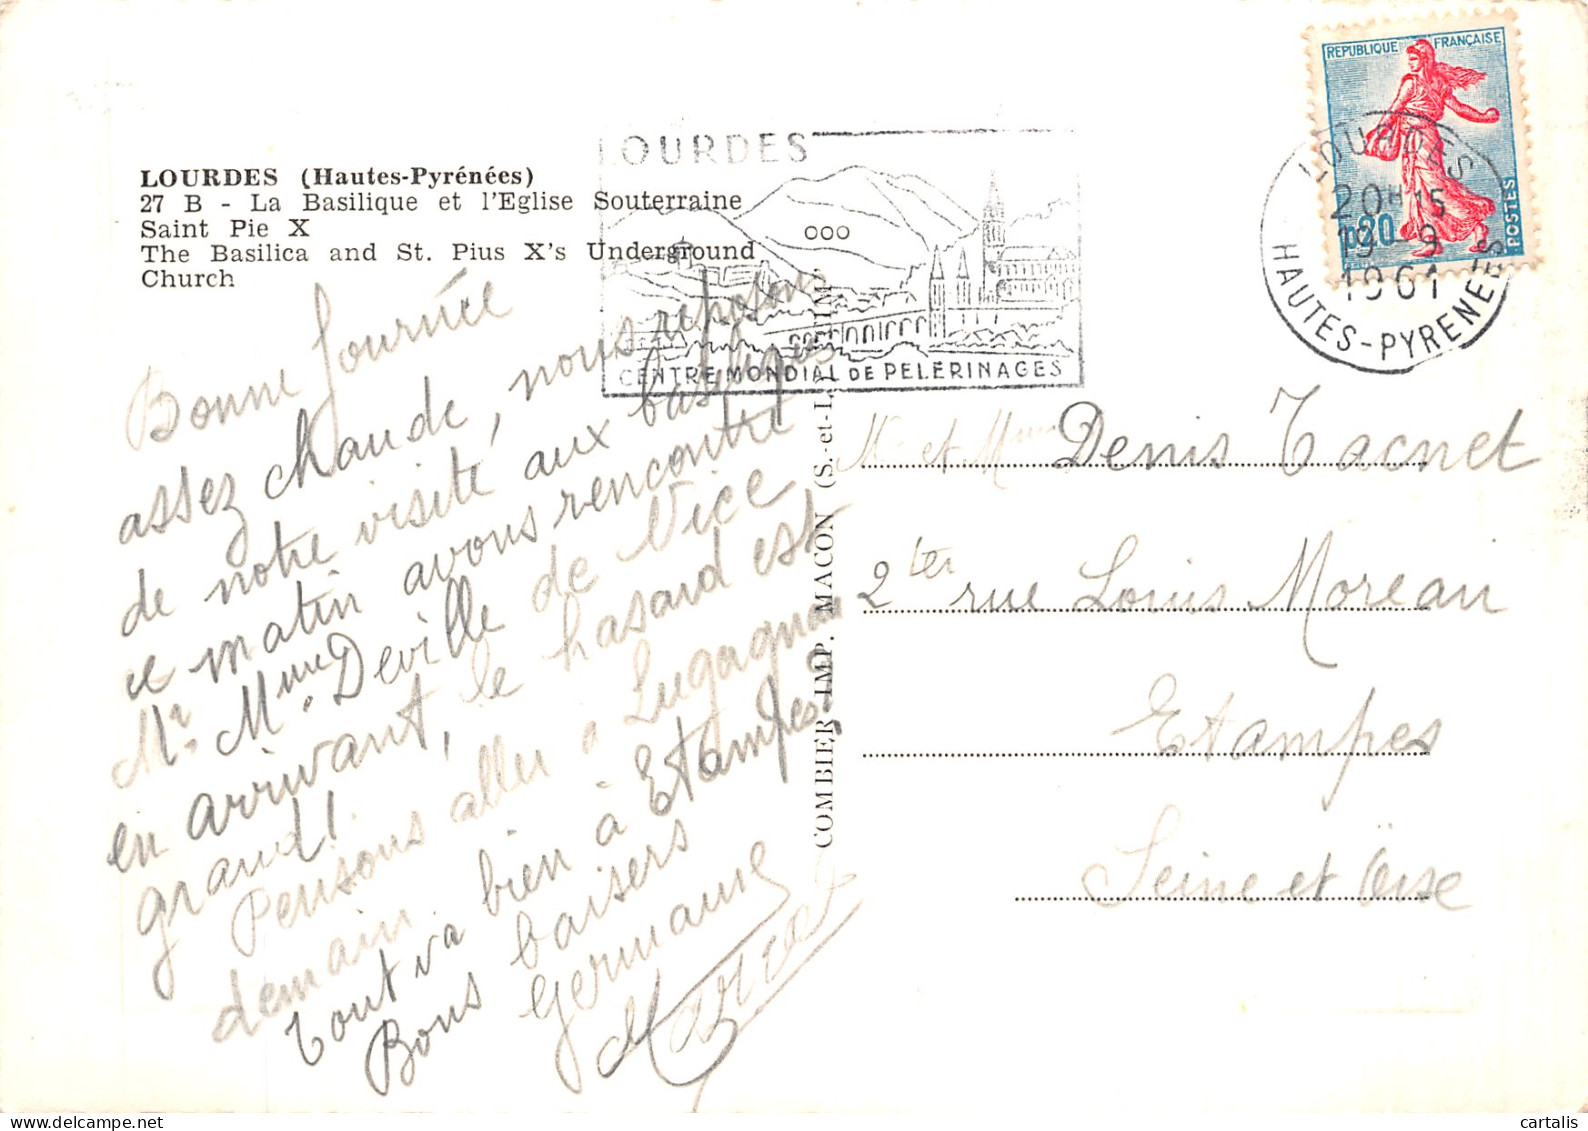 LOURDES (Hautes-Pyrénées)
27 B - La Basilique et l'Eglise Souterraine
Saint Pie X
The Basilica and St. Pius X's Underground
Church
LOURDES
CENTRE MONDIAL DE PELERINAGES
REPUBLIQUE FRANÇAISE
POSTES
LOURDES
20H15
19-9
1961
HAUTES-PYRENEES
Bonne Journée
assez chaude, nous reposons
de notre visite aux basiliques
ce matin avons rencontré
Mr. Mme. Deville de Nice
en arrivant, le hasard est
grand!
Pensons aller à Lugagnan
demain.
Tout va bien à Etampes?
Bons baisers
Germaine
COMBIER IMP. MACON (S.-et-L.)
Mr et Mme Denis Tacnet
2ter rue Louis Moreau
Etampes
Seine et Oise
cartalis